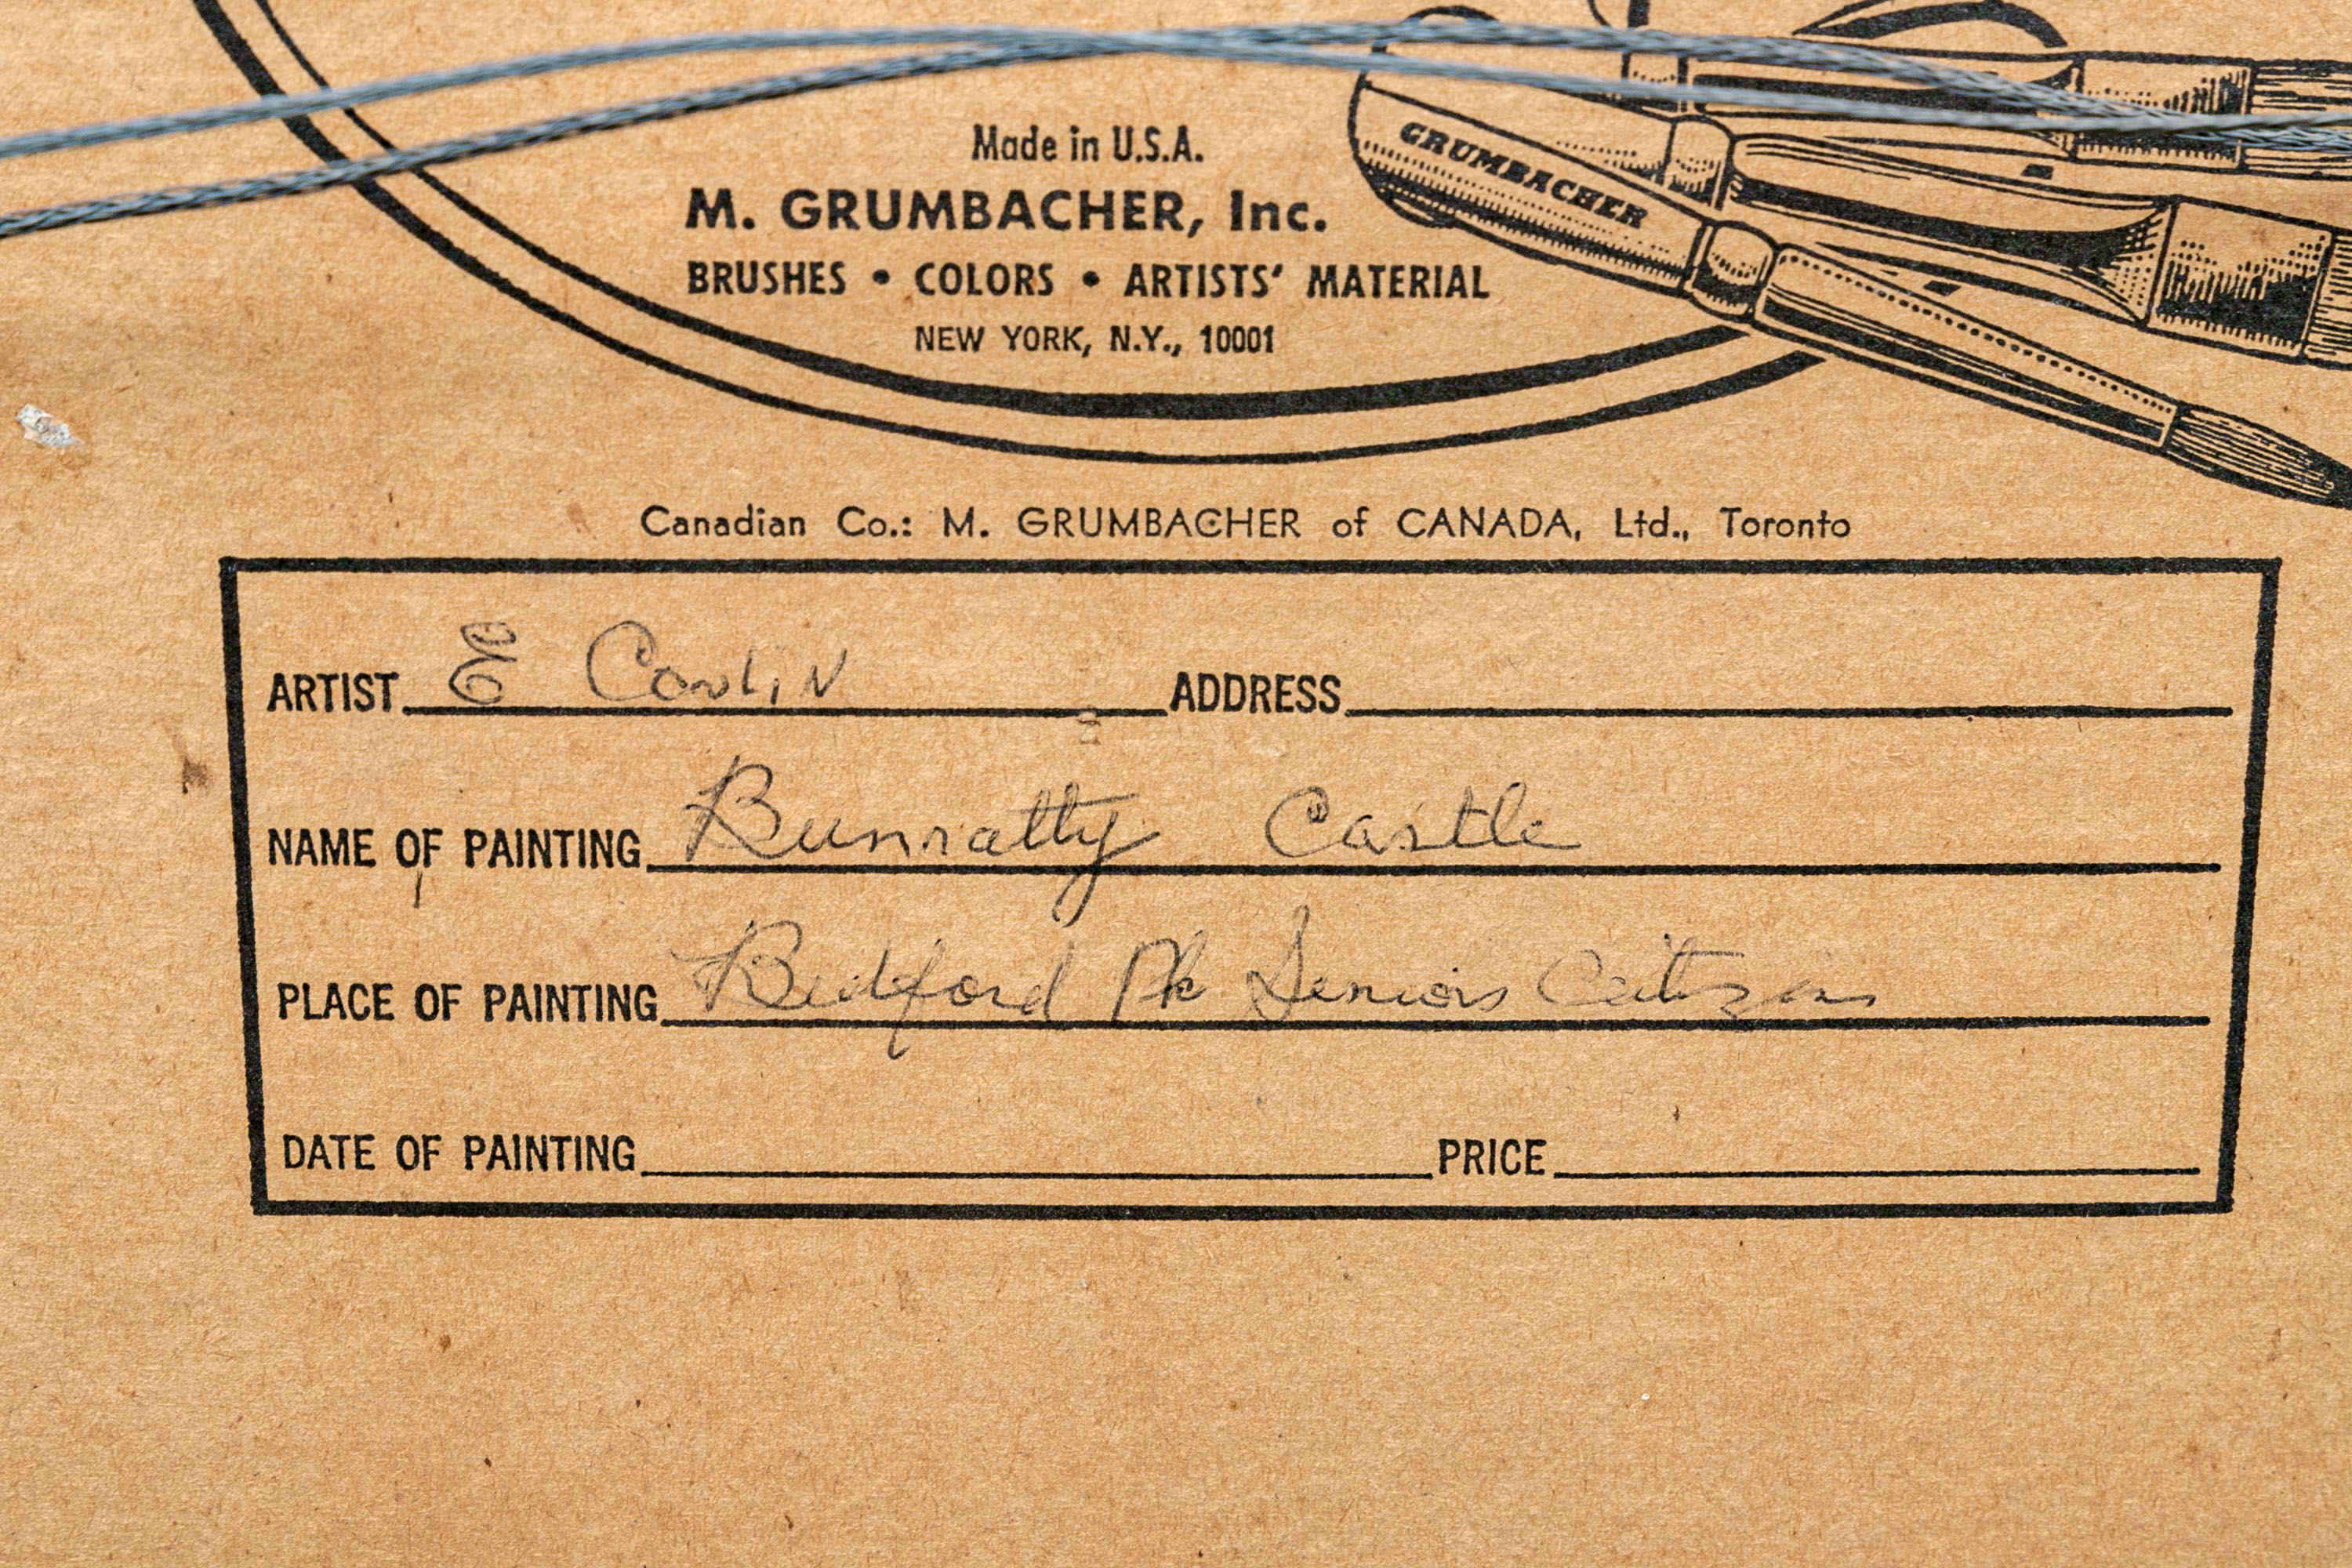 Made in U.S.A.
M. GRUMBACHER, Inc.
BRUSHES • COLORS • ARTISTS' MATERIAL
NEW YORK, N.Y., 10001
GRUMBACHER
Canadian Co.: M. GRUMBACHER of CANADA, Ltd., Toronto
ARTIST E Conlin ADDRESS
NAME OF PAINTING Bunratty Castle
PLACE OF PAINTING Bedford Pk Seniors Citizens
DATE OF PAINTING PRICE